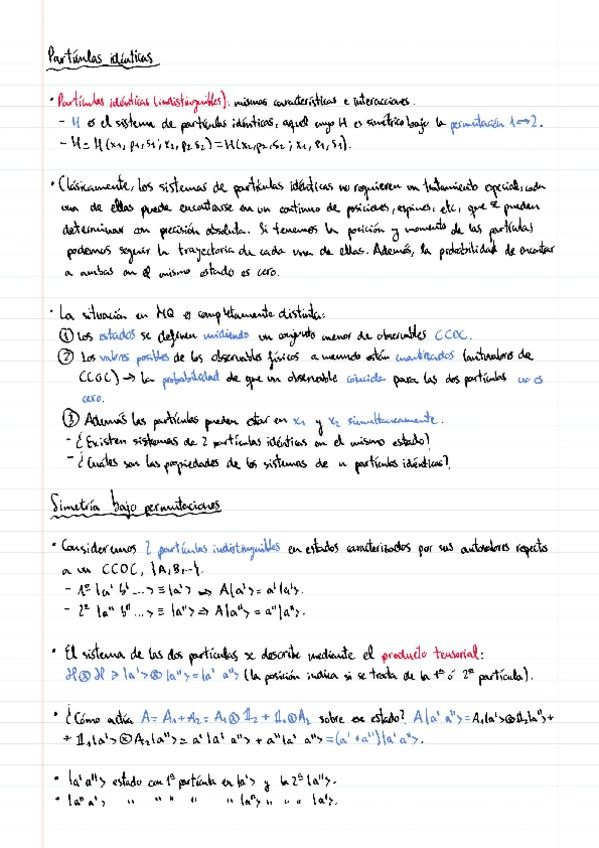 Partículas idénticas
• Partículas idénticas (indistinguibles): mismas características e interacciones.
- H es el sistema de partículas idénticas, aquel cuyo H es simétrico bajo la permutación 1↔2.
- H = H(x₁, p₁, s₁; x₂, p₂ s₂) = H(x₂, p₂, s₂; x₁, p₁, s₁).
• Clásicamente, los sistemas de partículas idénticas no requieren un tratamiento especial, cada
una de ellas puede encontrarse en un continuo de posiciones, espines, etc, que se pueden
determinar con precisión absoluta. Si tenemos la posición y momento de las partículas
podemos seguir la trayectoria de cada una de ellas. Además, la probabilidad de encontrar
a ambas en el mismo estado es cero.
• La situación en MQ es completamente distinta:
① Los estados se definen midiendo un conjunto menor de observables CCOC.
② Los valores posibles de los observables físicos a menudo están cuantizados (autovalores de
CCOC) → la probabilidad de que un observable coincida para las dos partículas no es
cero.
③ Además las partículas pueden estar en x₁ y x₂ simultáneamente.
- ¿Existen sistemas de 2 partículas idénticas en el mismo estado?
- ¿Cuáles son las propiedades de los sistemas de n partículas idénticas?
Simetría bajo permutaciones
• Consideremos 2 partículas indistinguibles en estados caracterizados por sus autovalores respecto
a un CCOC, {A, B, ...}.
- 1ª |a' b' ...> ≡ |a'> ⇒ A|a'> = a'|a'>.
- 2ª |a'' b'' ...> ≡ |a''> ⇒ A|a''> = a''|a''>.
• El sistema de las dos partículas se describe mediante el producto tensorial:
ℋ⊗ℋ ∋ |a'>⊗|a''> = |a' a''> (la posición indica si se trata de la 1ª ó 2ª partícula).
• ¿Cómo actúa A = A₁ + A₂ = A₁⊗𝟙₂ + 𝟙₁⊗A₂ sobre ese estado? A|a' a''> = A₁|a'>⊗𝟙₂|a''> +
+ 𝟙₁|a'>⊗A₂|a''> = a'|a' a''> + a''|a' a''> = (a' + a'')|a' a''>.
• |a' a''> estado con 1ª partícula en |a'> y la 2ª |a''>.
• |a'' a'> " " " " " |a''> " " " |a'>.